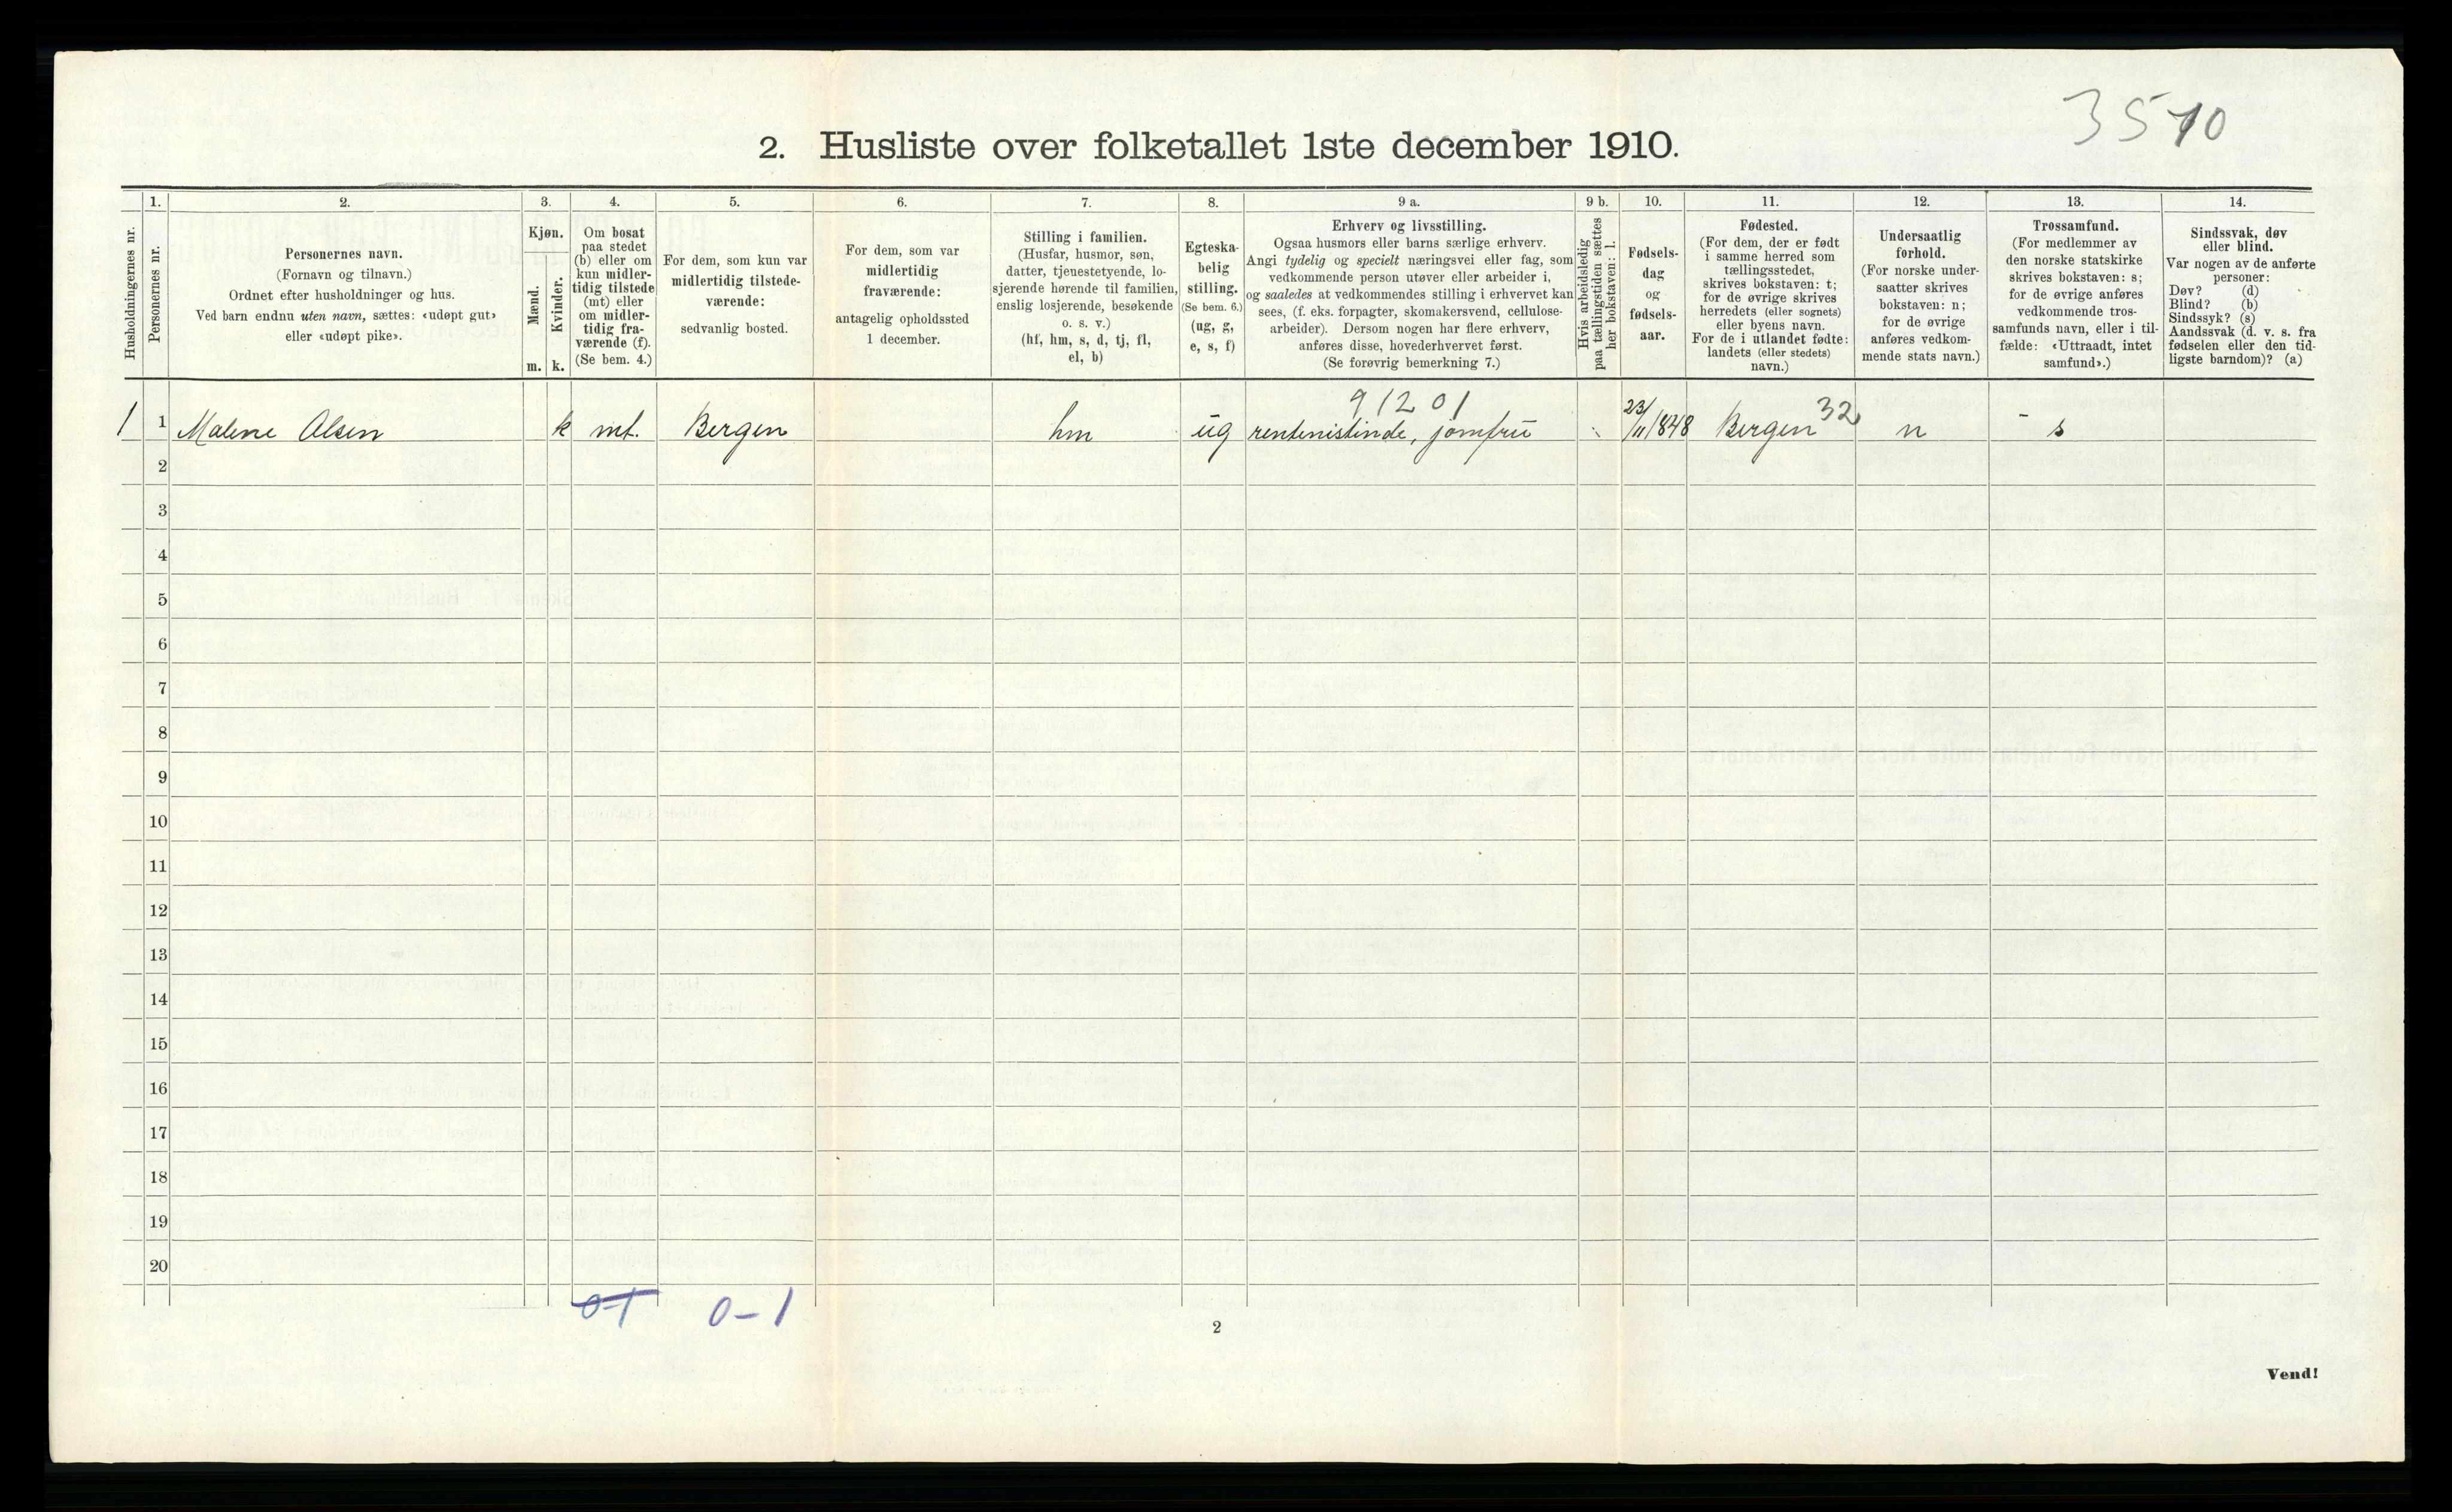 3510
2. Husliste over folketallet 1ste december 1910.
Husholdningernes nr.
1.
Personernes nr.
2.
Personernes navn.
(Fornavn og tilnavn.)
Ordnet efter husholdninger og hus.
Ved barn endnu uten navn, sættes: «udøpt gut»
eller «udøpt pike».
3.
Kjøn.
Mænd.
Kvinder.
m. k.
4.
Om bosat
paa stedet
(b) eller om
kun midler-
tidig tilstede
(mt) eller
om midler-
tidig fra-
værende (f).
(Se bem. 4.)
5.
For dem, som kun var
midlertidig tilstede-
værende:
sedvanlig bosted.
6.
For dem, som var
midlertidig
fraværende:
antagelig opholdssted
1 december.
7.
Stilling i familien.
(Husfar, husmor, søn,
datter, tjenestetyende, lo-
sjerende hørende til familien,
enslig losjerende, besøkende
o. s. v.)
(hf, hm, s, d, tj, fl,
el, b)
8.
Egteska-
belig
stilling.
(Se bem. 6.)
(ug, g,
e, s, f)
9 a.
Erhverv og livsstilling.
Ogsaa husmors eller barns særlige erhverv.
Angi tydelig og specielt næringsvei eller fag, som
vedkommende person utøver eller arbeider i,
og saaledes at vedkommendes stilling i erhvervet kan
sees, (f. eks. forpagter, skomakersvend, cellulose-
arbeider). Dersom nogen har flere erhverv,
anføres disse, hovederhvervet først.
(Se forøvrig bemerkning 7.)
9 b.
Hvis arbeidsledig
paa tællingstiden sættes
her bokstaven: l.
10.
Fødsels-
dag
og
fødsels-
aar.
11.
Fødested.
(For dem, der er født
i samme herred som
tællingsstedet,
skrives bokstaven: t;
for de øvrige skrives
herredets (eller sognets)
eller byens navn.
For de i utlandet fødte:
landets (eller stedets)
navn.)
12.
Undersaatlig
forhold.
(For norske under-
saatter skrives
bokstaven: n;
for de øvrige
anføres vedkom-
mende stats navn.)
13.
Trossamfund.
(For medlemmer av
den norske statskirke
skrives bokstaven: s;
for de øvrige anføres
vedkommende tros-
samfunds navn, eller i til-
fælde: «Uttraadt, intet
samfund».)
14.
Sindssvak, døv
eller blind.
Var nogen av de anførte
personer:
Døv? (d)
Blind? (b)
Sindssyk? (s)
Aandssvak (d. v. s. fra
fødselen eller den tid-
ligste barndom)? (a)
91201
32
1 1 Malene Olsen k mt. Bergen hm ug rentenistinde, jomfru 23/11 1848 Bergen n s
2
3
4
5
6
7
8
9
10
11
12
13
14
15
16
17
18
19
20
0-1 0-1
2
Vend!